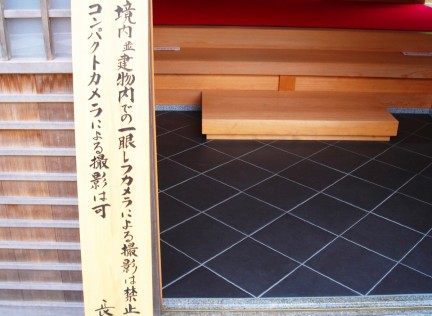 境内並建物内での一眼レフカメラによる撮影は禁止
コンパクトカメラによる撮影は可
長